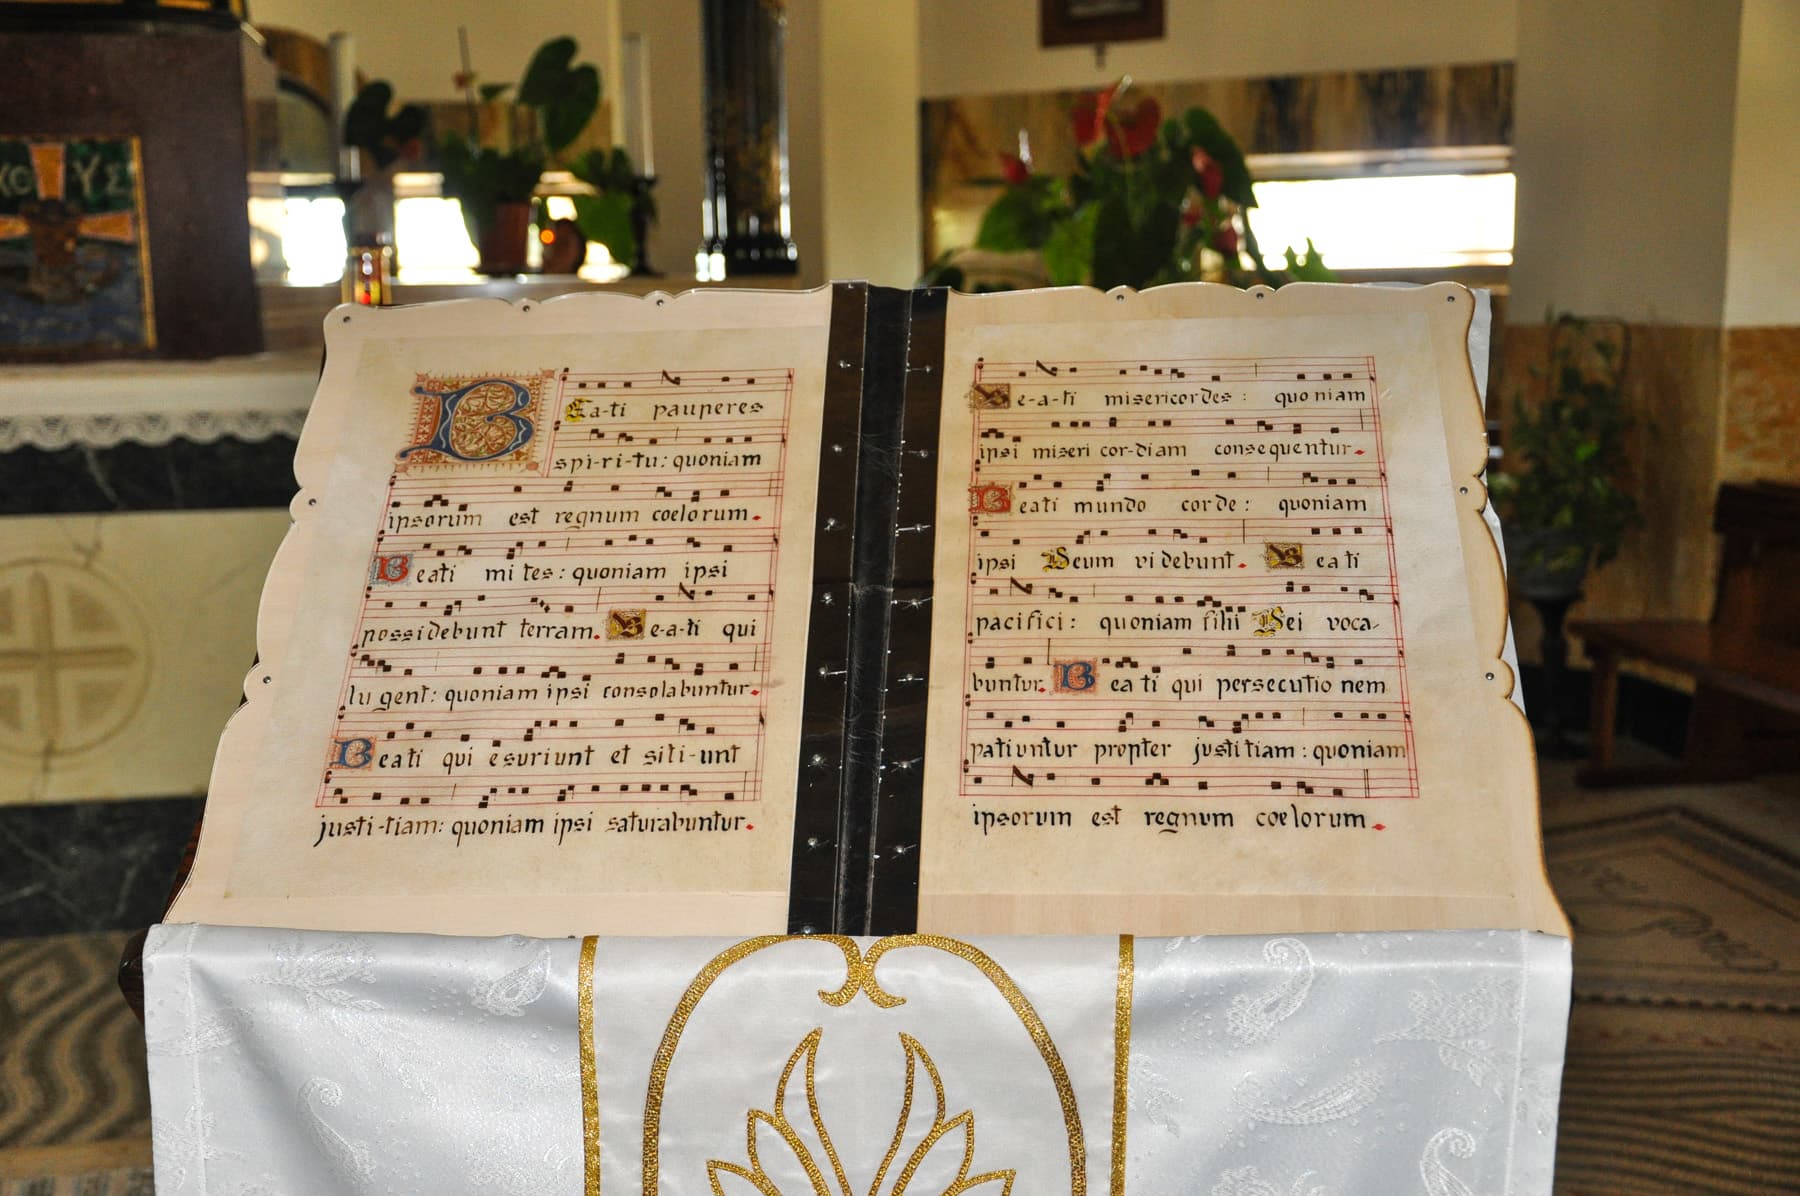 Ea-ti pauperes
spi-ri-tu: quoniam
ipsorum est regnum coelorum.
Beati mites: quoniam ipsi
possidebunt terram. Be-a-ti qui
lugent: quoniam ipsi consolabuntur.
Beati qui esuriunt et siti-unt
justi-tiam: quoniam ipsi saturabuntur.
Be-a-ti misericordes: quoniam
ipsi misericor-diam consequentur.
Beati mundo corde: quoniam
ipsi Deum videbunt. Beati
pacifici: quoniam filii Dei voca-
buntur. Beati qui persecutionem
patiuntur propter justitiam: quoniam
ipsorum est regnum coelorum.